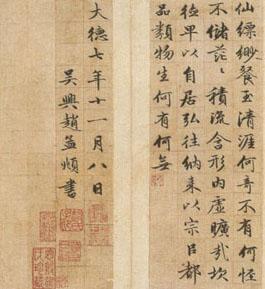 仙縹緲餐玉清涯何奇不有何怪
不儲茫〻積流含形內虛曠哉坎
德卑以自居弘往納來以宗㠯都
品類物生何有何無
大德七年十一月八日
吳興趙孟頫書